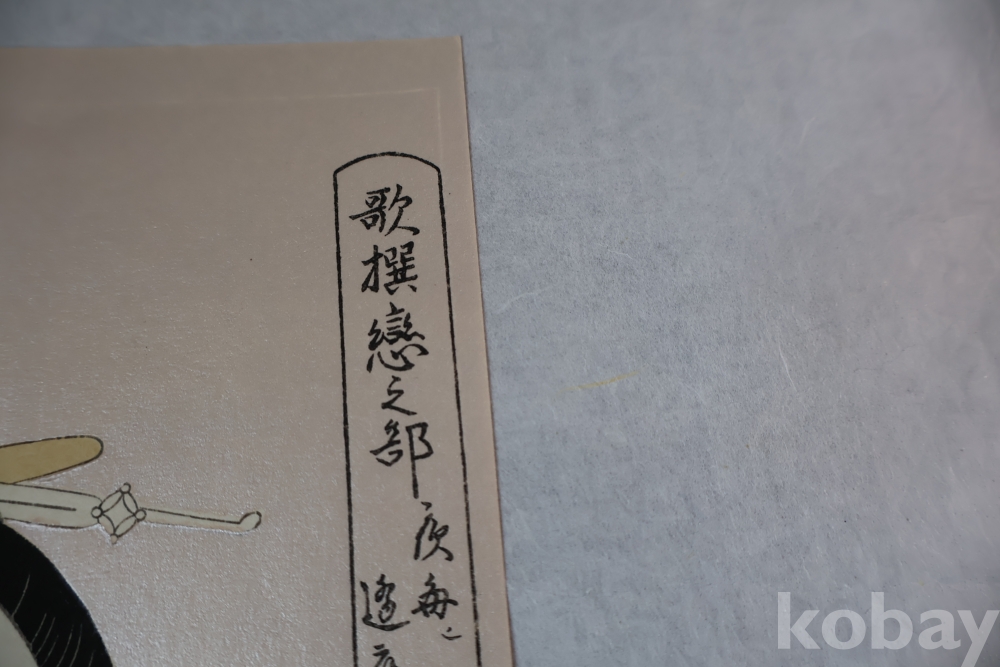 歌撰戀之部
夜毎ニ
逢
kobay